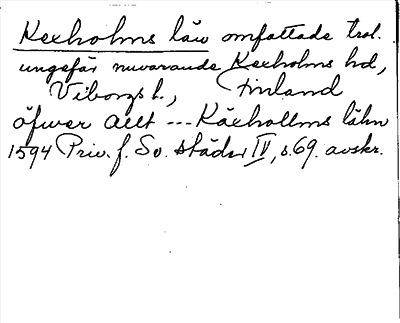 Kexholms län omfattade trol.
ungefär nuvarande Kexholms hd,
Viborgs l., Finland
öfwer allt --- Käxhollms lähn
1594 Priv. f. Sv. städer IV, s. 69. avskr.